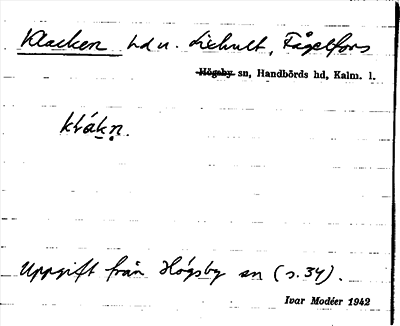 Klacken hd u. Liehult, Fågelfors
Högsby sn, Handbörds hd, Kalm. l.
klákn.
Uppgift från Högsby sn (s. 34).
Ivar Modéer 1942